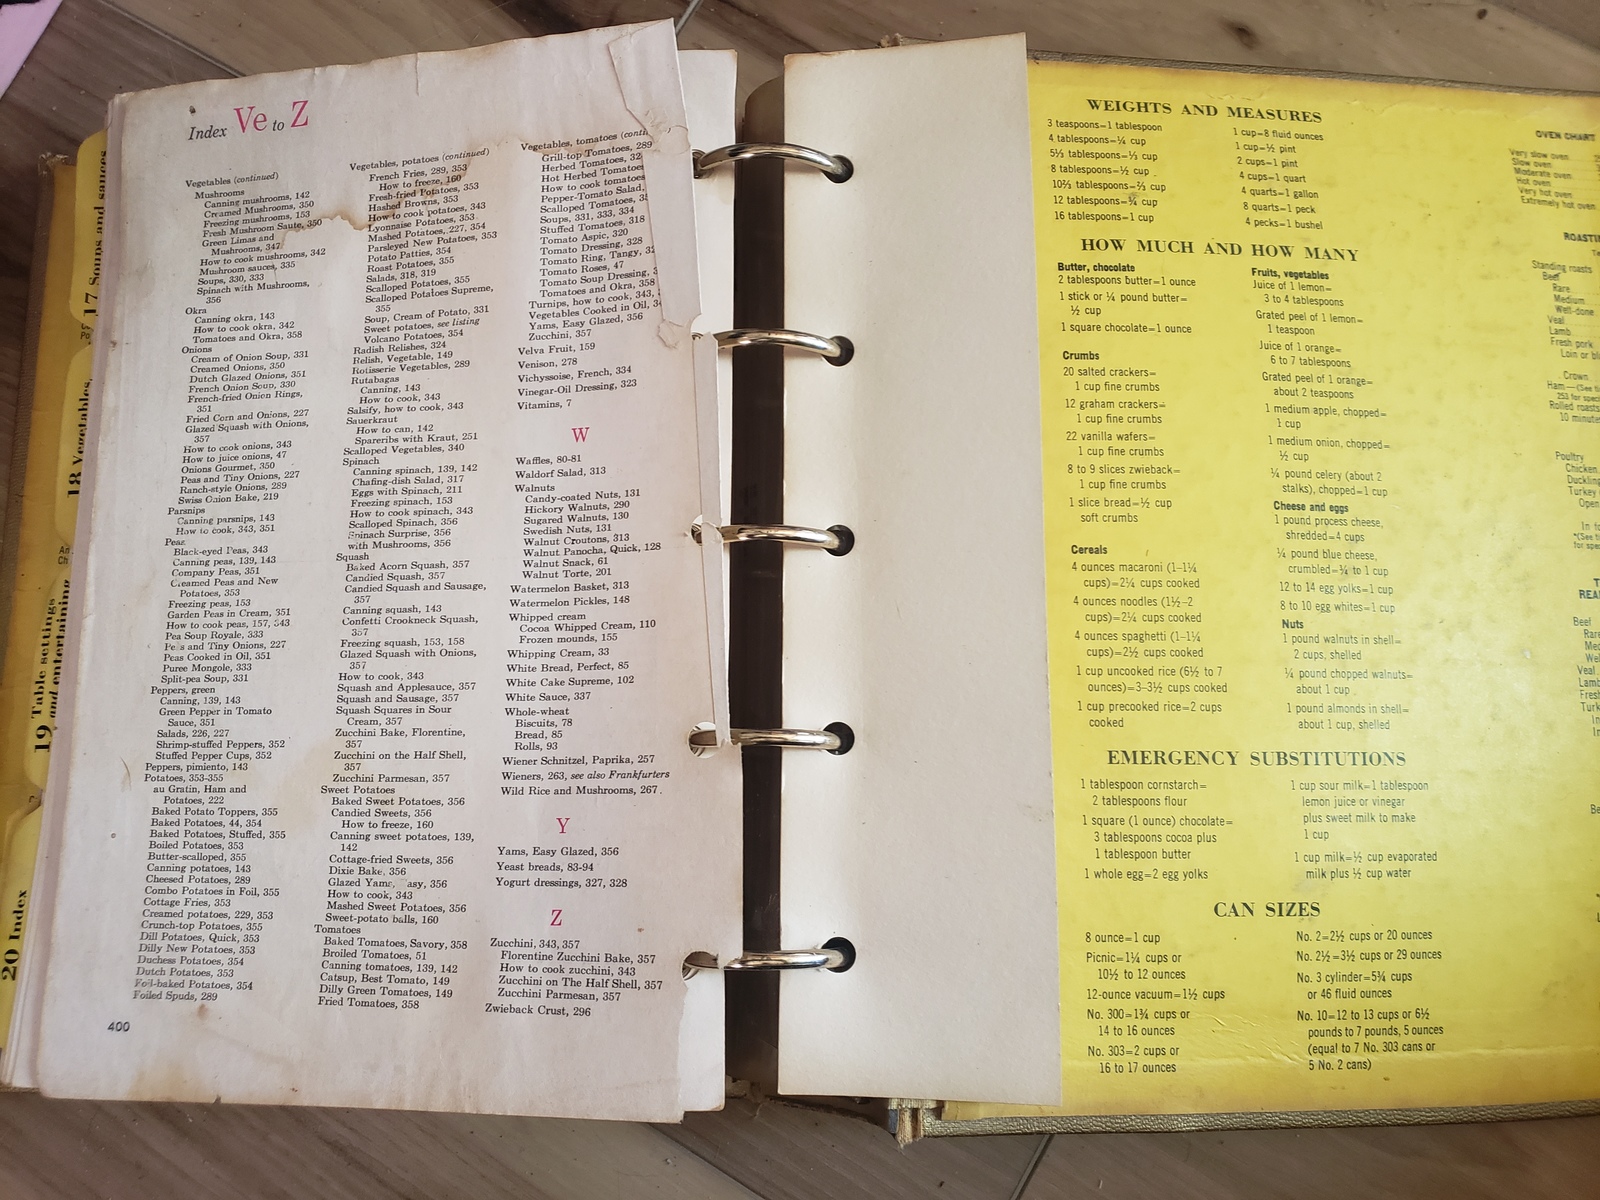 Index Ve to Z
Vegetables (continued)
Mushrooms
Canning mushrooms, 142
Creamed Mushrooms, 350
Freezing mushrooms, 153
Fresh Mushroom Saute, 350
Green Limas and
Mushrooms, 347
How to cook mushrooms, 342
Mushroom sauces, 335
Soups, 330, 333
Spinach with Mushrooms,
356
Okra
Canning okra, 143
How to cook okra, 342
Tomatoes and Okra, 358
Onions
Cream of Onion Soup, 331
Creamed Onions, 350
Dutch Glazed Onions, 351
French Onion Soup, 330
French-fried Onion Rings,
351
Fried Corn and Onions, 227
Glazed Squash with Onions,
357
How to cook onions, 343
How to juice onions, 47
Onions Gourmet, 350
Peas and Tiny Onions, 227
Ranch-style Onions, 289
Swiss Onion Bake, 219
Parsnips
Canning parsnips, 143
How to cook, 343, 351
Peas
Black-eyed Peas, 343
Canning peas, 139, 143
Company Peas, 351
Creamed Peas and New
Potatoes, 353
Freezing peas, 153
Garden Peas in Cream, 351
How to cook peas, 157, 343
Pea Soup Royale, 333
Peas and Tiny Onions, 227
Peas Cooked in Oil, 351
Puree Mongole, 333
Split-pea Soup, 331
Peppers, green
Canning, 139, 143
Green Pepper in Tomato
Sauce, 351
Salads, 226, 227
Shrimp-stuffed Peppers, 352
Stuffed Pepper Cups, 352
Peppers, pimiento, 143
Potatoes, 353-355
au Gratin, Ham and
Potatoes, 222
Baked Potato Toppers, 355
Baked Potatoes, 44, 354
Baked Potatoes, Stuffed, 355
Boiled Potatoes, 353
Butter-scalloped, 355
Canning potatoes, 143
Cheesed Potatoes, 289
Combo Potatoes in Foil, 355
Cottage Fries, 353
Creamed potatoes, 229, 353
Crunch-top Potatoes, 355
Dill Potatoes, Quick, 353
Dilly New Potatoes, 353
Duchess Potatoes, 354
Dutch Potatoes, 353
Foil-baked Potatoes, 354
Foiled Spuds, 289
400
Vegetables, potatoes (continued)
French Fries, 289, 353
How to freeze, 160
Fresh-fried Potatoes, 353
Hashed Browns, 353
How to cook potatoes, 343
Lyonnaise Potatoes, 353
Mashed Potatoes, 227, 354
Parsleyed New Potatoes, 353
Potato Patties, 354
Roast Potatoes, 355
Salads, 318, 319
Scalloped Potatoes, 355
Scalloped Potatoes Supreme,
355
Soup, Cream of Potato, 331
Sweet potatoes, see listing
Volcano Potatoes, 354
Radish Relishes, 324
Relish, Vegetable, 149
Rotisserie Vegetables, 289
Rutabagas
Canning, 143
How to cook, 343
Salsify, how to cook, 343
Sauerkraut
How to can, 142
Spareribs with Kraut, 251
Scalloped Vegetables, 340
Spinach
Canning spinach, 139, 142
Chafing-dish Salad, 317
Eggs with Spinach, 211
Freezing spinach, 153
How to cook spinach, 343
Scalloped Spinach, 356
Spinach Surprise, 356
with Mushrooms, 356
Squash
Baked Acorn Squash, 357
Candied Squash, 357
Candied Squash and Sausage,
357
Canning squash, 143
Confetti Crookneck Squash,
357
Freezing squash, 153, 158
Glazed Squash with Onions,
357
How to cook, 343
Squash and Applesauce, 357
Squash and Sausage, 357
Squash Squares in Sour
Cream, 357
Zucchini Bake, Florentine,
357
Zucchini on the Half Shell,
357
Zucchini Parmesan, 357
Sweet Potatoes
Baked Sweet Potatoes, 356
Candied Sweets, 356
How to freeze, 160
Canning sweet potatoes, 139,
142
Cottage-fried Sweets, 356
Dixie Bake, 356
Glazed Yams, asy, 356
How to cook, 343
Mashed Sweet Potatoes, 356
Sweet-potato balls, 160
Tomatoes
Baked Tomatoes, Savory, 358
Broiled Tomatoes, 51
Canning tomatoes, 139, 142
Catsup, Best Tomato, 149
Dilly Green Tomatoes, 149
Fried Tomatoes, 358
Vegetables, tomatoes (conti
Grill-top Tomatoes, 289
Herbed Tomatoes, 32
Hot Herbed Tomatoes
How to cook tomatoes
Pepper-Tomato Salad,
Scalloped Tomatoes,
Soups, 331, 333, 334
Stuffed Tomatoes, 318
Tomato Aspic, 320
Tomato Dressing, 328
Tomato Ring, Tangy,
Tomato Roses, 47
Tomato Soup Dressing,
Tomatoes and Okra, 358
Turnips, how to cook, 343,
Vegetables Cooked in Oil,
Yams, Easy Glazed, 356
Zucchini, 357
Velva Fruit, 159
Venison, 278
Vichyssoise, French, 334
Vinegar-Oil Dressing, 323
Vitamins, 7
W
Waffles, 80-81
Waldorf Salad, 313
Walnuts
Candy-coated Nuts, 131
Hickory Walnuts, 290
Sugared Walnuts, 130
Swedish Nuts, 131
Walnut Croutons, 313
Walnut Panocha, Quick, 128
Walnut Snack, 61
Walnut Torte, 201
Watermelon Basket, 313
Watermelon Pickles, 148
Whipped cream
Cocoa Whipped Cream, 110
Frozen mounds, 155
Whipping Cream, 33
White Bread, Perfect, 85
White Cake Supreme, 102
White Sauce, 337
Whole-wheat
Biscuits, 78
Bread, 85
Rolls, 93
Wiener Schnitzel, Paprika, 257
Wieners, 263, see also Frankfurters
Wild Rice and Mushrooms, 267
Y
Yams, Easy Glazed, 356
Yeast breads, 83-94
Yogurt dressings, 327, 328
Z
Zucchini, 343, 357
Florentine Zucchini Bake, 357
How to cook zucchini, 343
Zucchini on The Half Shell, 357
Zucchini Parmesan, 357
Zwieback Crust, 296
17 Soups and sauces
18 Vegetables,
19 Table settings
and entertaining
20 Index
WEIGHTS AND MEASURES
3 teaspoons=1 tablespoon
4 tablespoons=¼ cup
5⅓ tablespoons=⅓ cup
8 tablespoons=½ cup
10⅔ tablespoons=⅔ cup
12 tablespoons=¾ cup
16 tablespoons=1 cup
1 cup=8 fluid ounces
1 cup=½ pint
2 cups=1 pint
4 cups=1 quart
4 quarts=1 gallon
8 quarts=1 peck
4 pecks=1 bushel
HOW MUCH AND HOW MANY
Butter, chocolate
2 tablespoons butter=1 ounce
1 stick or ¼ pound butter=
½ cup
1 square chocolate=1 ounce
Crumbs
20 salted crackers=
1 cup fine crumbs
12 graham crackers=
1 cup fine crumbs
22 vanilla wafers=
1 cup fine crumbs
8 to 9 slices zwieback=
1 cup fine crumbs
1 slice bread=½ cup
soft crumbs
Cereals
4 ounces macaroni (1-1¼
cups)=2¼ cups cooked
4 ounces noodles (1½-2
cups)=2¼ cups cooked
4 ounces spaghetti (1-1¼
cups)=2½ cups cooked
1 cup uncooked rice (6½ to 7
ounces)=3-3½ cups cooked
1 cup precooked rice=2 cups
cooked
Fruits, vegetables
Juice of 1 lemon=
3 to 4 tablespoons
Grated peel of 1 lemon=
1 teaspoon
Juice of 1 orange=
6 to 7 tablespoons
Grated peel of 1 orange=
about 2 teaspoons
1 medium apple, chopped=
1 cup
1 medium onion, chopped=
½ cup
¼ pound celery (about 2
stalks), chopped=1 cup
Cheese and eggs
1 pound process cheese,
shredded=4 cups
¼ pound blue cheese,
crumbled=¾ to 1 cup
12 to 14 egg yolks=1 cup
8 to 10 egg whites=1 cup
Nuts
1 pound walnuts in shell=
2 cups, shelled
¼ pound chopped walnuts=
about 1 cup
1 pound almonds in shell=
about 1 cup, shelled
EMERGENCY SUBSTITUTIONS
1 tablespoon cornstarch=
2 tablespoons flour
1 square (1 ounce) chocolate=
3 tablespoons cocoa plus
1 tablespoon butter
1 whole egg=2 egg yolks
1 cup sour milk=1 tablespoon
lemon juice or vinegar
plus sweet milk to make
1 cup
1 cup milk=½ cup evaporated
milk plus ½ cup water
CAN SIZES
8 ounce=1 cup
Picnic=1¼ cups or
10½ to 12 ounces
12-ounce vacuum=1½ cups
No. 300=1¾ cups or
14 to 16 ounces
No. 303=2 cups or
16 to 17 ounces
No. 2=2½ cups or 20 ounces
No. 2½=3½ cups or 29 ounces
No. 3 cylinder=5¾ cups
or 46 fluid ounces
No. 10=12 to 13 cups or 6½
pounds to 7 pounds, 5 ounces
(equal to 7 No. 303 cans or
5 No. 2 cans)
OVEN CHART
Very slow oven
Slow oven
Moderate oven
Hot oven
Very hot oven
Extremely hot oven
ROASTI
Standing roasts
Beef
Rare
Medium
Well-done
Veal
Lamb
Fresh pork
Loin or bl
Crown
Ham—(See
253 for spec
Rolled roasts
10 minute
Poultry
Chicken
Duckling
Turkey
Open
In fo
for spec
REA
Beef
Rare
Med
Wel
Veal
Lamb
Fresh
Turk
In